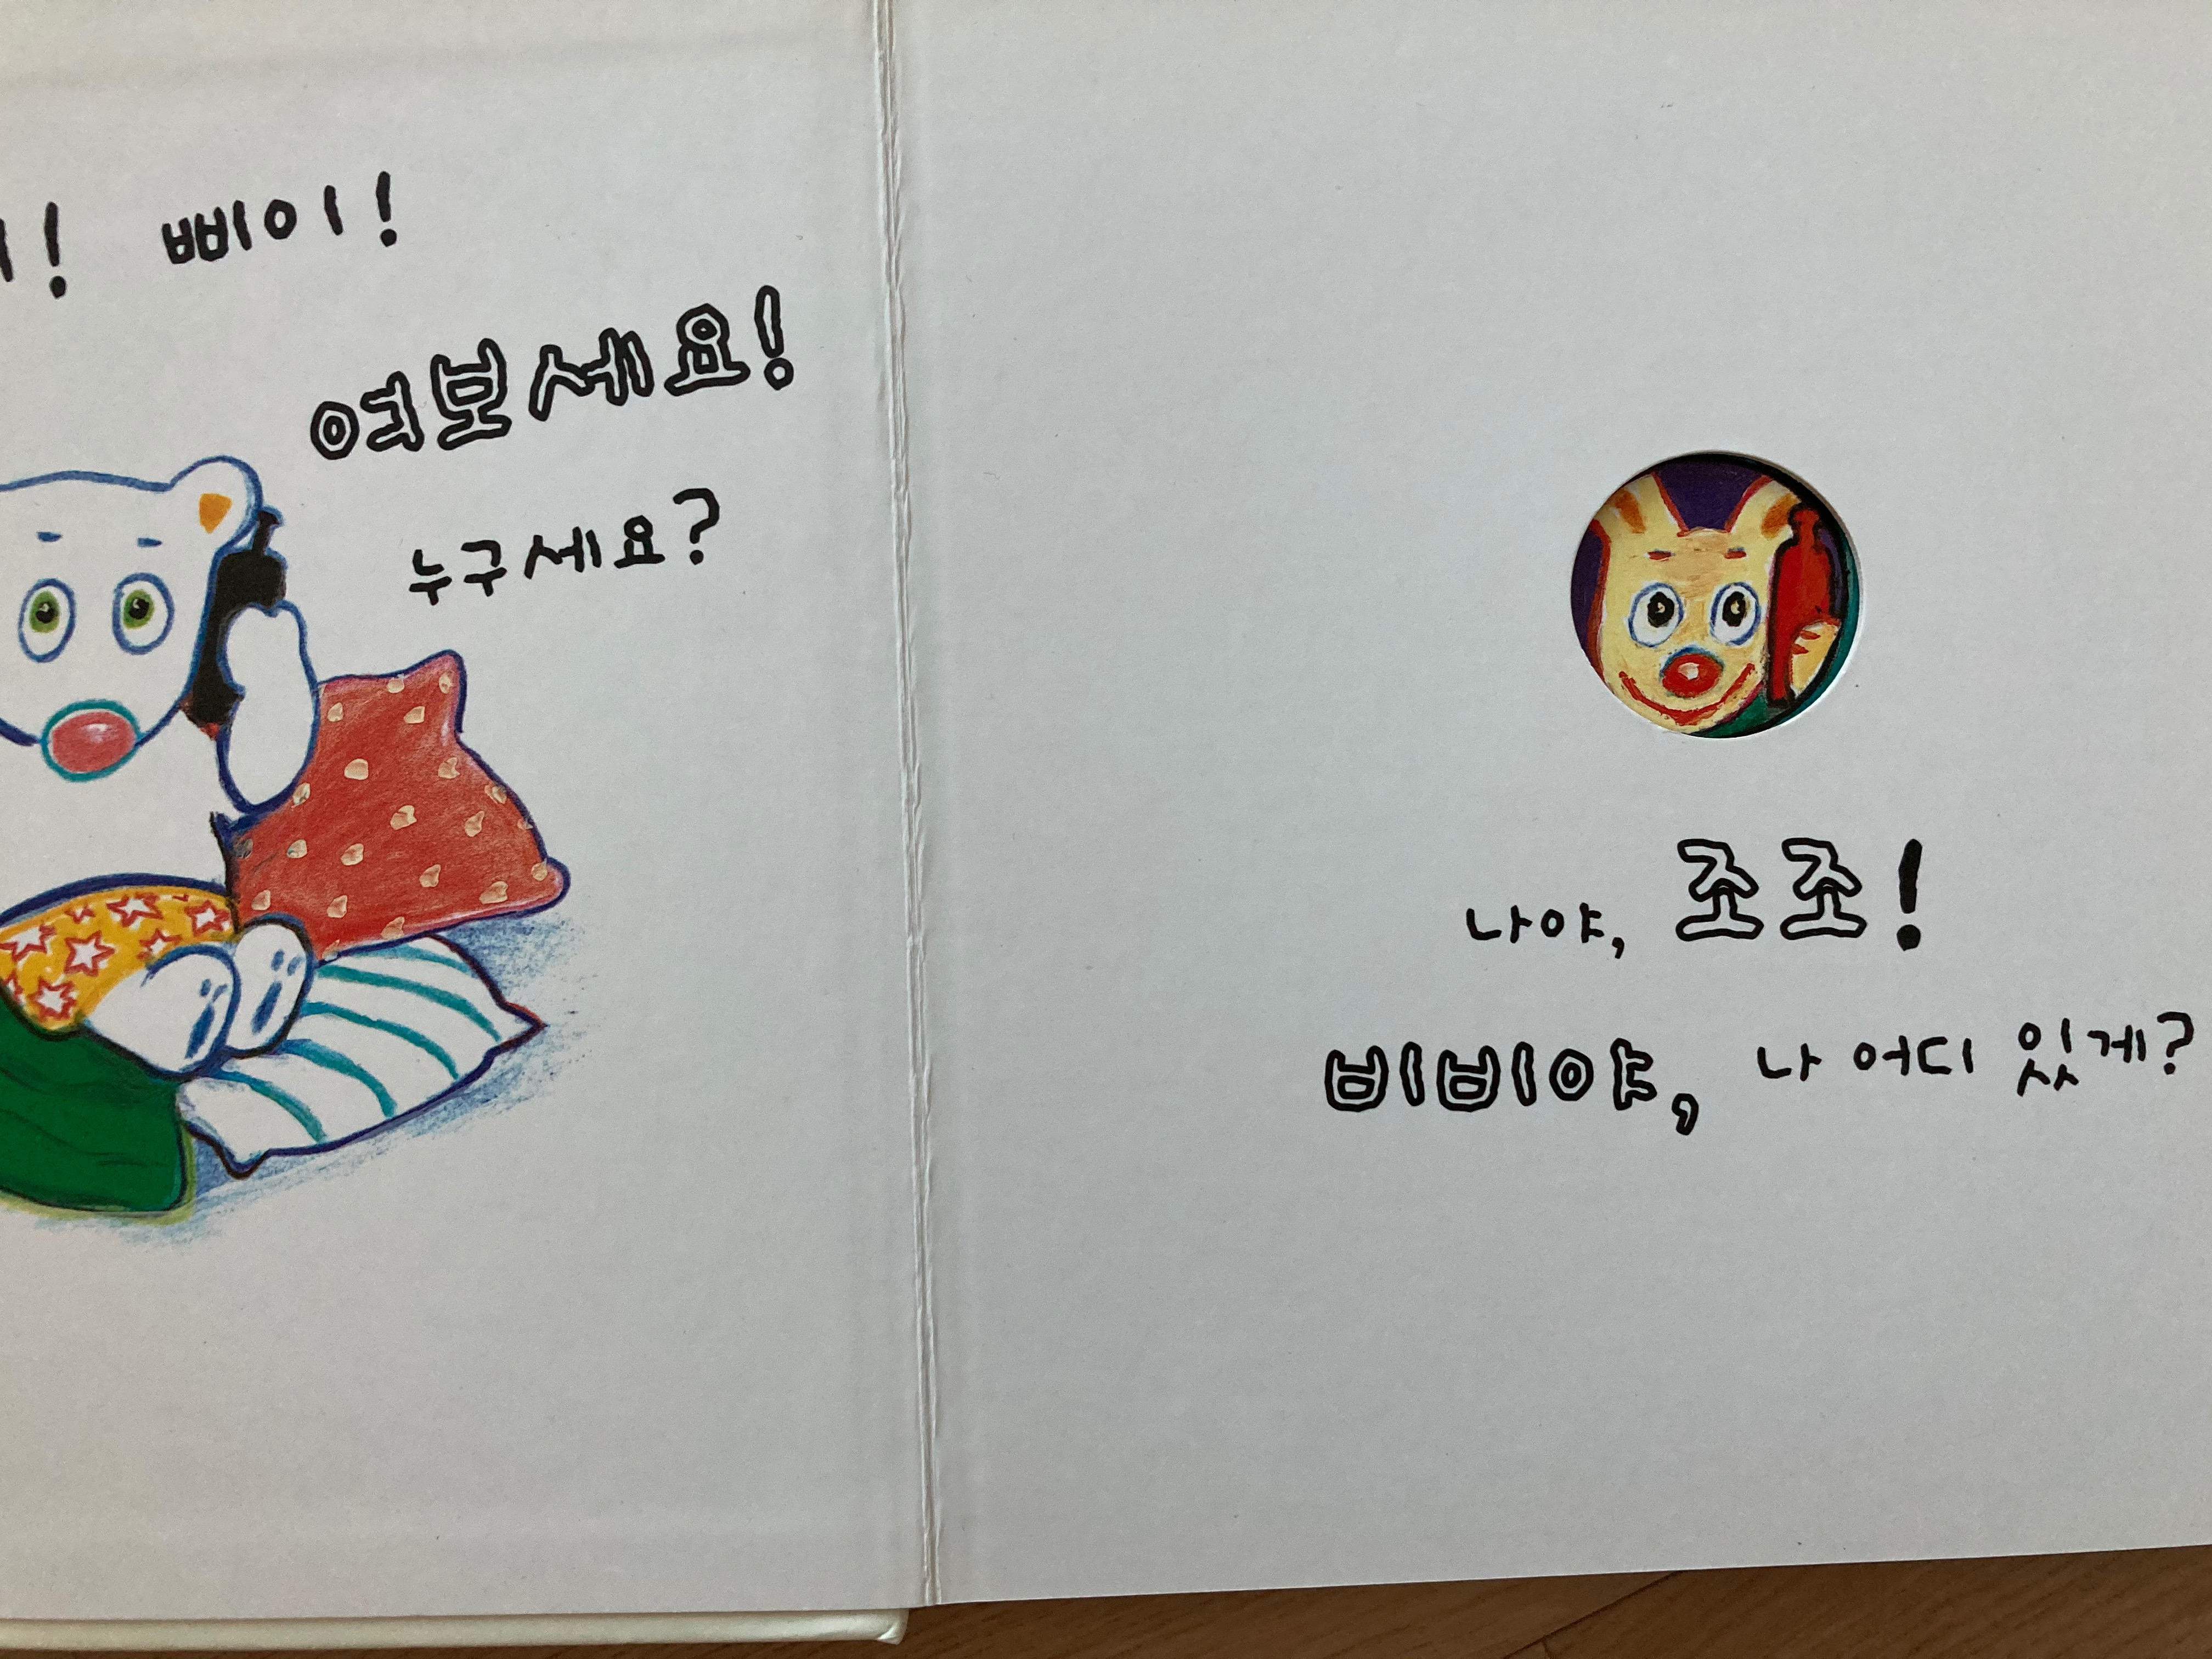 ! 삐이!
여보세요!
누구세요?
나야, 조조!
비비야, 나 어디 있게?